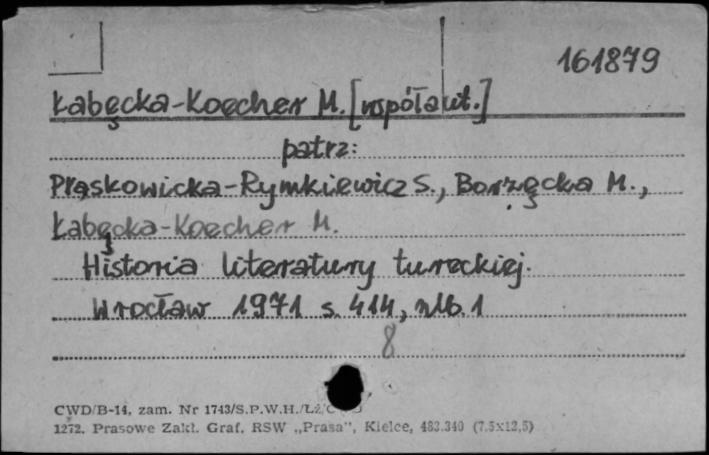 161879
Łabęcka-Koecher M. [współaut.]
patrz:
Pląskowicka-Rymkiewicz S., Borzęcka M.,
Łabęcka-Koecher M.
Historia literatury tureckiej.
Wrocław 1971 s. 414, nlb. 1
8
CWD/B-14, zam. Nr 1743/S.P.W.H./Łź/
1272. Prasowe Zakł. Graf. RSW „Prasa”, Kielce, 483.340 (7,5x12,5)